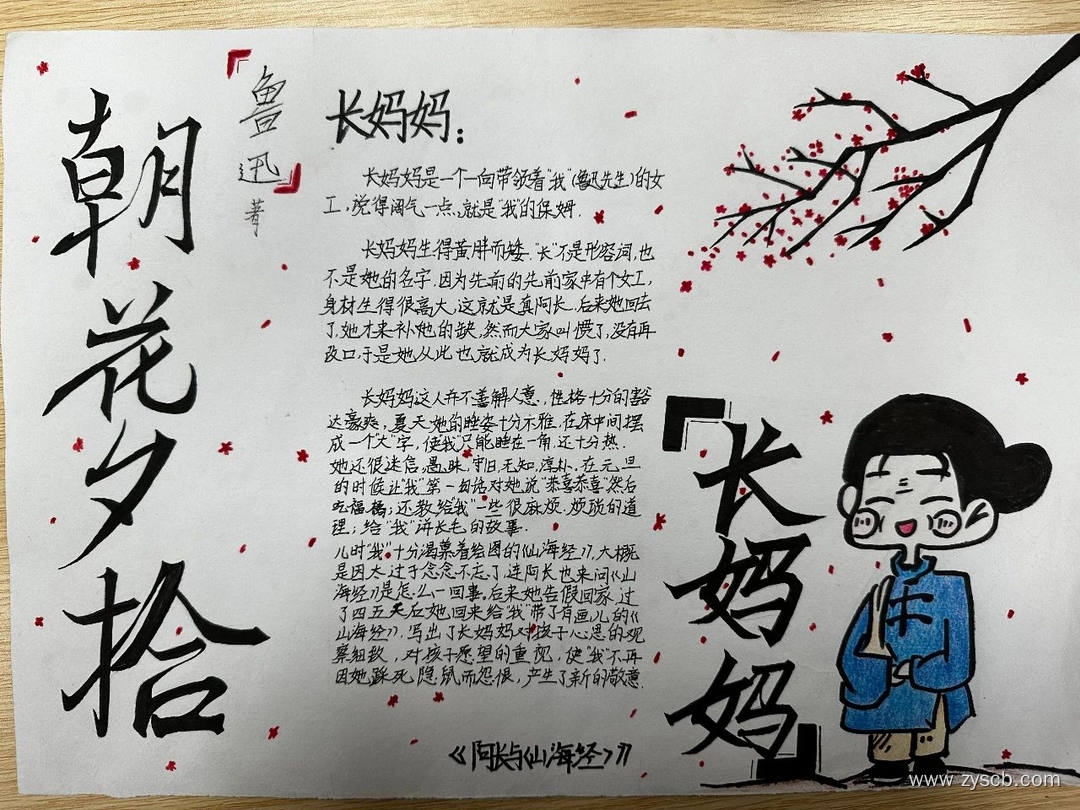 朝花夕拾
鲁迅
著
长妈妈：
长妈妈是一个一向带领着“我”(鲁迅先生)的女
工，说得阔气一点，就是“我”的保姆．
长妈妈生得黄胖而矮．“长”不是形容词，也
不是她的名字．因为先前的先前家中有个女工，
身材生得很高大，这就是真阿长．后来她回去
了，她才来补她的缺，然而大家叫惯了，没有再
改口，于是她从此也就成为长妈妈了．
长妈妈这人并不善解人意，性格十分的豁
达豪爽，夏天她的睡姿十分不雅，在床中间摆
成一个“大”字，使“我”只能睡在一角，还十分热．
她还很迷信，愚昧，守旧，无知，淳朴．在元旦
的时候让“我”第一句话对她说“恭喜恭喜”然后
吃福橘；还教给“我”一些很麻烦．烦琐的道
理；给“我”讲长毛的故事．
儿时“我”十分渴慕着绘图的《山海经》，大概
是因太过于念念不忘了，连阿长也来问《山
海经》是怎么一回事．后来她告假回家，过
了四五天后她回来给“我”带了有画儿的《
山海经》．写出了长妈妈对孩子心思的观
察细致，对孩子愿望的重视，使“我”不再
因她踩死隐鼠而怨恨，产生了新的敬意．
《阿长与《山海经》》
长妈妈
www.zyscb.com